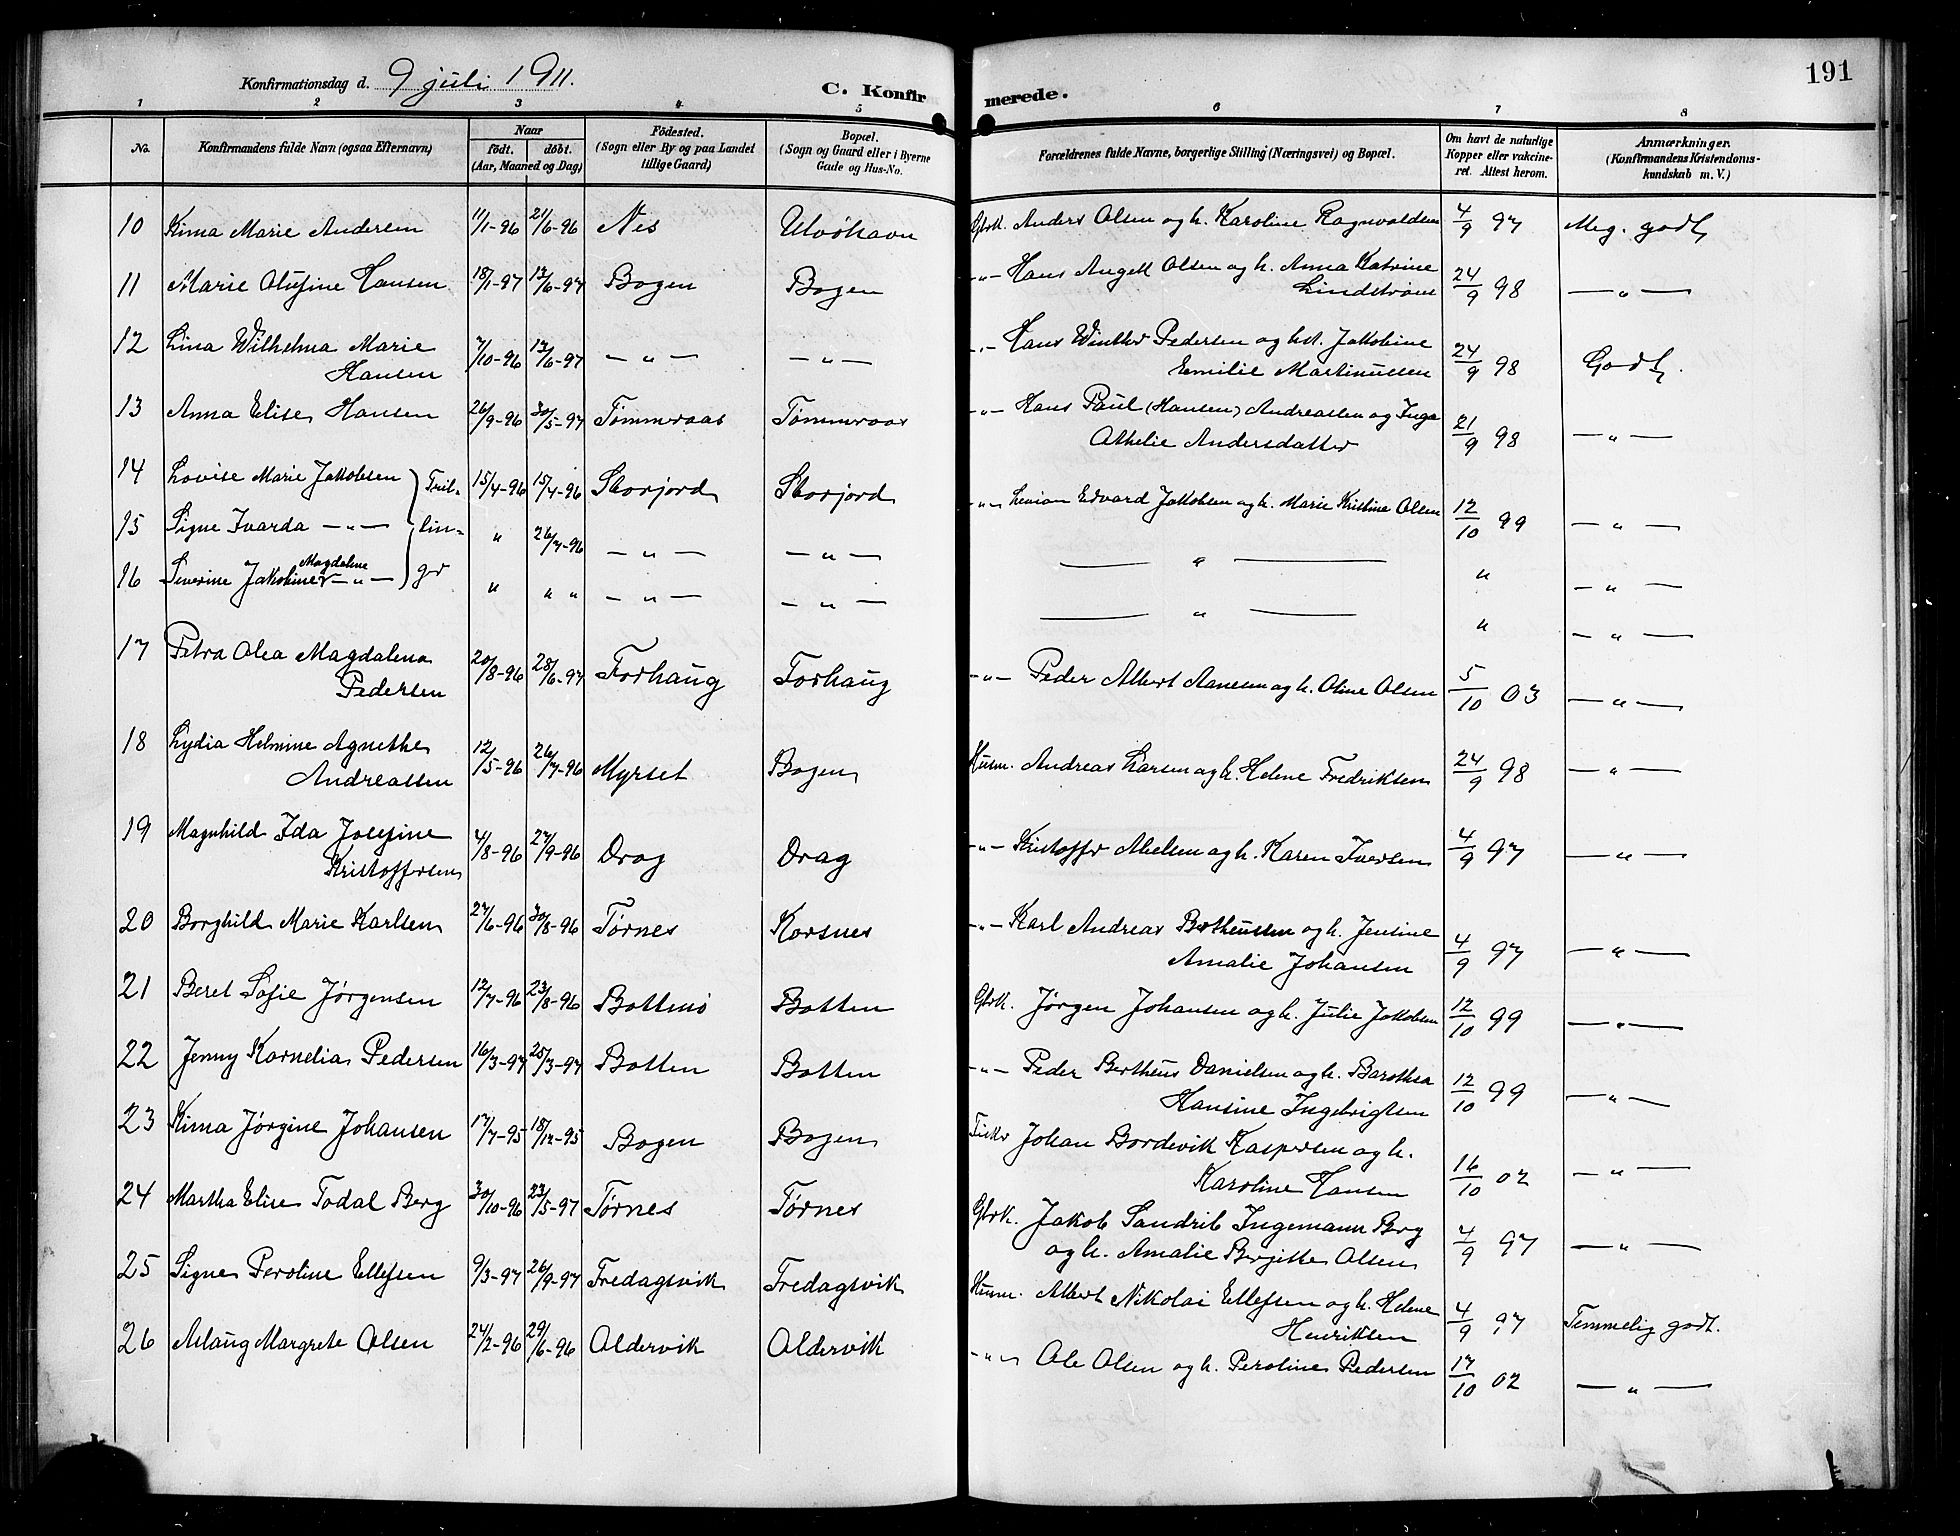 191
Konfirmationsdag d. 9 juli 1911.
C. Konfirmerede.
1 2 3 4 5 6 7 8
No.
Konfirmandens fulde Navn (ogsaa Efternavn)
Naar
født. døbt.
(Aar, Maaned og Dag)
Fødested.
(Sogn eller By og paa Landet tillige Gaard)
Bopæl.
(Sogn og Gaard eller i Byerne Gade og Hus-No.
Forældrenes fulde Navne, borgerlige Stilling (Næringsvei) og Bopæl.
Om havt de naturlige Kopper eller vakcineret. Attest herom.
Anmærkninger.
(Konfirmandens Kristendomskundskab m. V.)
10 Kima Marie Andersen 11/1-96 21/6-96 Nes Ulvöhavn Gbrk. Anders Olsen og h. Karoline Ragnvaldsen 4/9 97 Meg. godt
11 Marie Olufine Hansen 18/1-97 13/6-97 Bogen Bogen -"- Hans Angell Olsen og h. Anna Katrine
Lindstrøm 24/9 98 — " —
12 Lina Wilhelma Marie
Hansen 7/10-96 13/6-97 — " — — " — -"- Hans Winther Pedersen og hst. Jakobine
Emilie Martinussen 24/9 98 Godt.
13 Anna Elise Hansen 26/9-96 30/5-97 Tömmeraas Tömmeraas -"- Hans Paul (Hansen) Andreassen og Inga
Athelie Andersdatter 21/9 98 — " —
14 Lovise Marie Jakobsen Tril- 15/4-96 15/4-96 Storjord Storjord -"- Edvard Jakobsen og h. Marie Kristine Olsen 12/10 99 — " —
15 Signe Ivarda — " — lin- " 26/7-96 — " — — " — — " — " — " —
16 Severine Jakobine Magdalene — " — ger " " " — " — — " — — " — " — " —
17 Petra Olea Magdalena
Pedersen 20/8-96 28/6-97 Forhaug Forhaug -"- Peder Albert Aanesen og h. Oline Olsen 5/10 03 — " —
18 Lydia Helmine Agnethe
Andreassen 12/5-96 26/7-96 Myrset Bogen Husm. Andreas Larsen og h. Helene Fredriksen 24/9 98 — " —
19 Magnhild Ida Josefine
Kristoffersen 4/8-96 27/9-96 Drag Drag -"- Kristoffer Abelsen og h. Karen Iversen 4/9 97 — " —
20 Borghild Marie Karlsen 27/6-96 30/8-96 Tørnes Korsnes -"- Karl Andreas Bertheussen og h. Jensine
Amalie Johansen 4/9 97 — " —
21 Beret Sofie Jørgensen 12/7-96 23/8-96 Bottenö Botten Gbrk. Jørgen Johansen og h. Julie Jakobsen 12/10 99 — " —
22 Jenny Kornelia Pedersen 16/3-97 25/3-97 Botten Botten -"- Peder Bertheus Danielsen og h. Barothea
Hansine Ingebrigtsen 12/10 99 — " —
23 Kima Jørgine Johansen 17/7-95 18/12-95 Bogen Bogen Fisker Johan Bordevik Kaspersen og h.
Karoline Hansen 16/10 02 — " —
24 Martha Elise Todal Berg 30/10-96 23/5-97 Tørnes Tørnes Gbrk. Jakob Sandrib Ingemann Berg
og h. Amalie Bergitte Olsen 4/9 97 — " —
25 Signe Peroline Ellefsen 9/3-97 26/9-97 Fredagsvik Fredagsvik Husm. Albert Nikolai Ellefsen og h. Helene
Henriksen 4/9 97 Temmelig godt.
26 Aslaug Margrete Olsen 24/2-96 29/6-96 Aldervik Aldervik -"- Ole Olsen og h. Peroline Pedersen 17/10 02 — " —